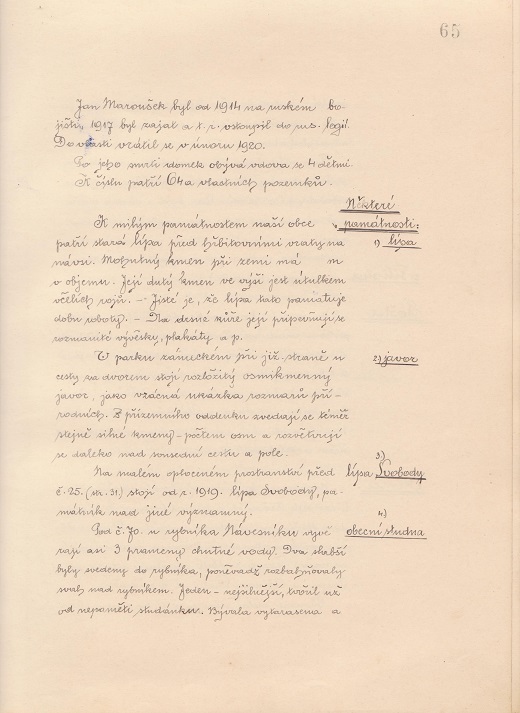 65
Jan Maroušek byl od 1914 na ruském bo-
jišti, 1917 byl zajat a t. r. vstoupil do rus. legií.
Do vlasti vrátil se v únoru 1920.
Po jeho smrti domek obývá vdova se 4 dětmi.
K číslu patří 64 a vlastních pozemků.
Některé
K milým památnostem naší obce památnosti:
patří stará lípa před hřbitovními vraty na 1) lípa
návsi. Mohutný kmen při zemi má m
v objemu. Její dutý kmen ve výši jest útulkem
včelích rojů. - Jisté je, že lípa tato pamatuje
dobu roboty. - Na drsné kůře její připevňují se
rozmanité vývěsky, plakáty a p.
V parku zámeckém při již. straně u 2) javor
cesty za dvorem stojí rozložitý osmikmenný
javor, jako vzácná ukázka rozmarů pří-
rodních. Z přízemního oddenku zvedají se téměř
stejně silné kmeny - počtem osm a rozvětvují
se daleko nad sousední cestu a pole. 3)
Na malém oploceném prostranství před lípa Svobody
č. 25. (str. 31.) stojí od r. 1919. lípa Svobody, pa-
mátník nad jiné významný. 4)
Pod č. 70. u rybníka Návesníku vyvě- obecní studna
rají asi 3 prameny chutné vody. Dva slabší
byly svedeny do rybníka, poněvadž rozbahňovaly
svah nad rybníkem. Jeden - nejsilnější, tvořil už
od nepaměti studánku. Bývala vytarasena a